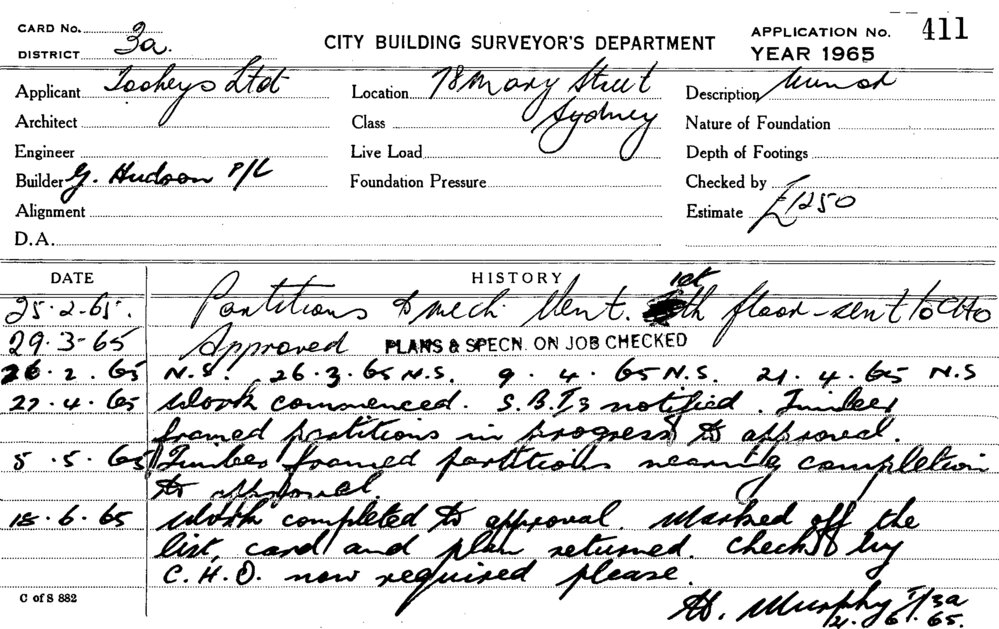 CARD No.
DISTRICT 3a.
CITY BUILDING SURVEYOR'S DEPARTMENT
APPLICATION No. 411
YEAR 1965
Applicant Tooheys Ltd
Location 78 Mary Street
Sydney
Description Minor
Architect
Class
Nature of Foundation
Engineer
Live Load
Depth of Footings
Builder G. Hudson P/L
Foundation Pressure
Checked by
Alignment
Estimate £1250
D.A.
DATE HISTORY
25.2.65. Partitions & mech Vent. 1st floor - sent to CHO
29.3-65 Approved PLANS & SPECN. ON JOB CHECKED
26.2.65 N.S. 26.3.65 N.S. 9.4.65 N.S. 21.4.65 N.S
27.4.65 Work commenced. S.B.I. notified. Timber
framed partitions in progress to approval.
5.5.65 Timber framed partitions nearing completion
to approval.
18.6.65 Work completed to approval. Marked off the
list, card and plan returned. Check by
C.H.O. now required please.
C of S 882
H. Murphy I/3a
21.6.65.